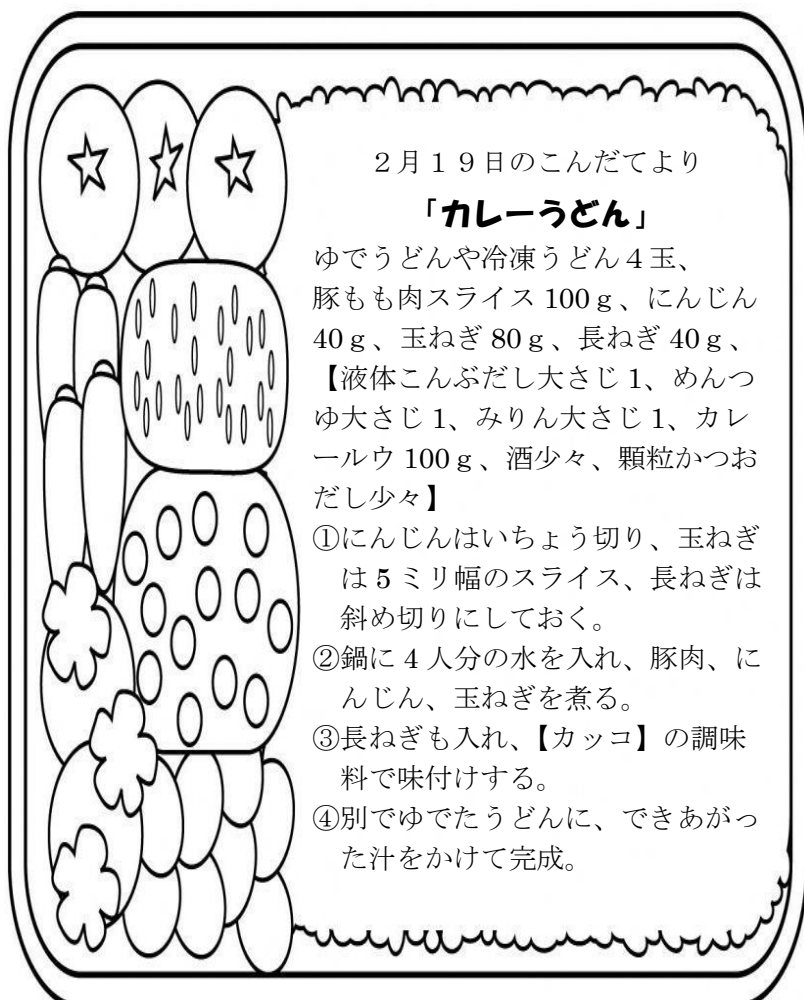 ２月１９日のこんだてより
「カレーうどん」
ゆでうどんや冷凍うどん４玉、
豚もも肉スライス 100ｇ、にんじん
40ｇ、玉ねぎ 80ｇ、長ねぎ 40ｇ、
【液体こんぶだし大さじ 1、めんつ
ゆ大さじ 1、みりん大さじ 1、カレ
ールウ 100ｇ、酒少々、顆粒かつお
だし少々】
①にんじんはいちょう切り、玉ねぎ
は 5 ミリ幅のスライス、長ねぎは
斜め切りにしておく。
②鍋に 4 人分の水を入れ、豚肉、に
んじん、玉ねぎを煮る。
③長ねぎも入れ、【カッコ】の調味
料で味付けする。
④別でゆでたうどんに、できあがっ
た汁をかけて完成。